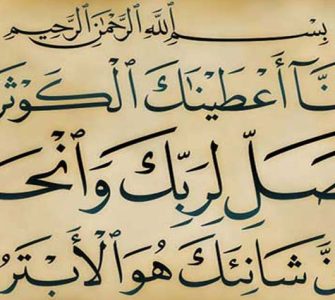 بِسْمِ ٱللَّهِ ٱلرَّحْمَٰنِ ٱلرَّحِيمِ
نَّآ أَعْطَيْنَٰكَ ٱلْكَوْثَرَ
صَلِّ لِرَبِّكَ وَٱنْحَ
نَّ شَانِئَكَ هُوَ ٱلْأَبْتَرُ